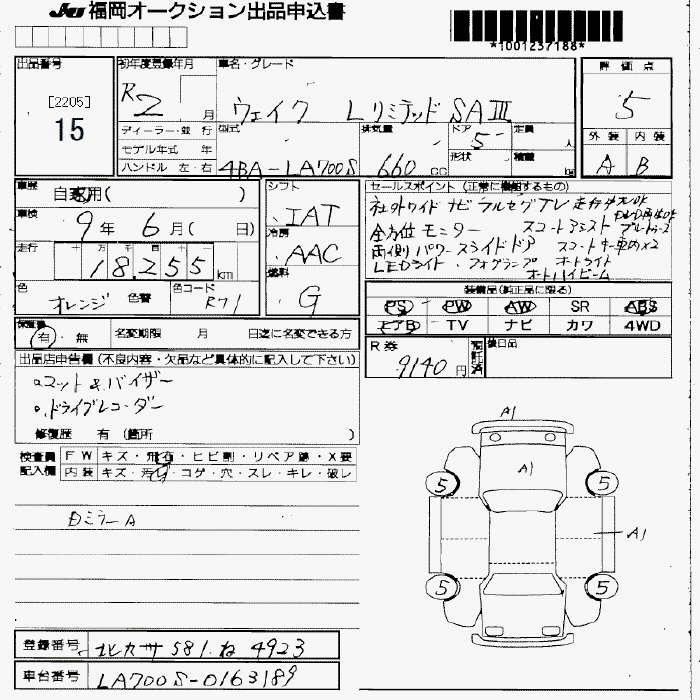 JU 福岡オークション出品申込書
*1001237188*
出品番号
[2205]
15
初年度登録年月
R2 月
車名・グレード
ウェイク Lリミテッド SAⅢ
評価点
5
外装 内装
A B
ディーラー・並行
モデル年式 年
ハンドル 左・右
型式
4BA-LA700S
排気量
660 cc
ドア
5
形状
定員
人
積載
kg
車歴
自家用( )
車検
9年 6月( 日)
走行
十 万 千 百 十
18,255 km
色
オレンジ
色替
色コード
R71
シフト
IAT
冷房
AAC
燃料
G
セールスポイント (正常に機能するもの)
社外ワイド ナビ フルセグTV 走行中TV OK
DVD再生OK
全方位モニター スマートアシスト ブルートゥース
両側パワースライドドア スマートキー車内×2
LEDライト・フォグランプ オートライト
オートハイビーム
装備品(純正品に限る)
PS PW AW SR ABS
エアB TV ナビ カワ 4WD
保証書
有・無
名変期限 月 日迄に名変できる方
R券
9140円
預託済
後日品
出品店申告欄 (不良内容・欠品など具体的に記入して下さい)
マット&バイザー
ドライブレコーダー
修復歴 有 (箇所 )
検査員記入欄
FW キズ・飛石・ヒビ割・リペア跡・X要
内装 キズ・汚れ・コゲ・穴・スレ・キレ・破レ
ミラーA
A1
A1
5
5
A1
5
5
登録番号
北九州 581 ね 4923
車台番号
LA700S-0163189